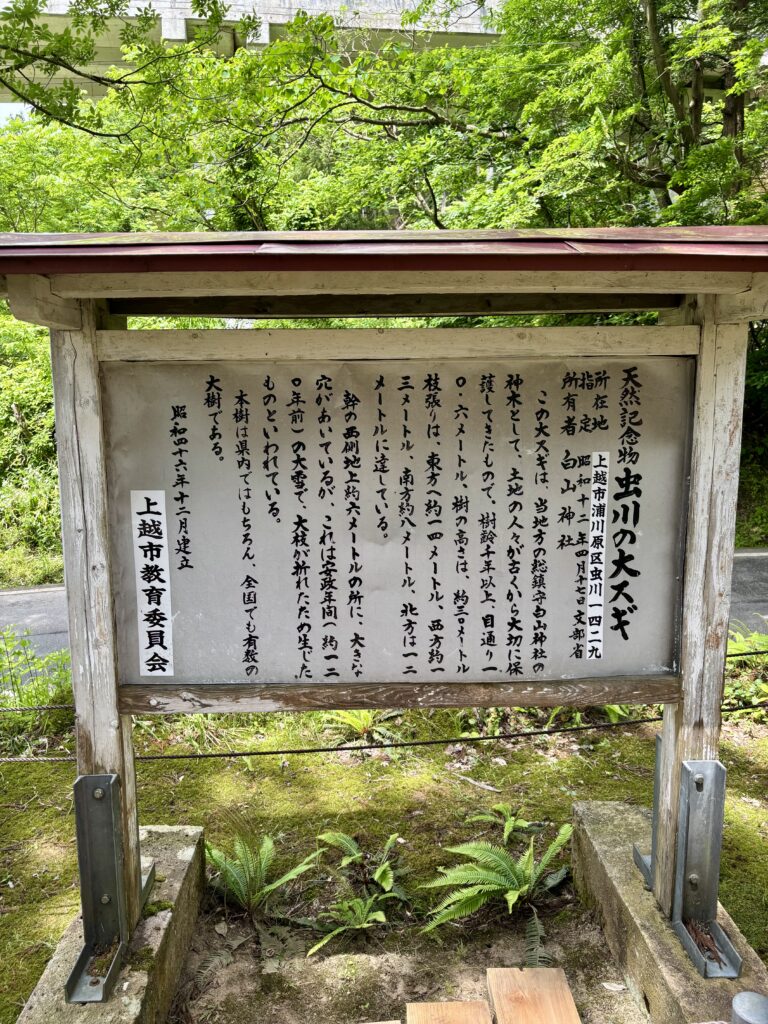 天然記念物 虫川の大スギ
所在地 上越市浦川原区虫川一四二九
指定 昭和十二年四月十七日 文部省
所有者 白山神社
この大スギは、当地方の総鎮守白山神社の
神木として、土地の人々が古くから大切に保
護してきたもので、樹齢千年以上、目通り一
〇・六メートル、樹の高さは、約三〇メートル
枝張りは、東方へ約一四メートル、西方約一
三メートル、南方約八メートル、北方は一二
メートルに達している。
幹の西側地上約六メートルの所に、大きな
穴があいているが、これは安政年間（約一二
〇年前）の大雪で、大枝が折れたため生じた
ものといわれている。
本樹は県内ではもちろん、全国でも有数の
大樹である。
昭和四十六年十二月建立
上越市教育委員会